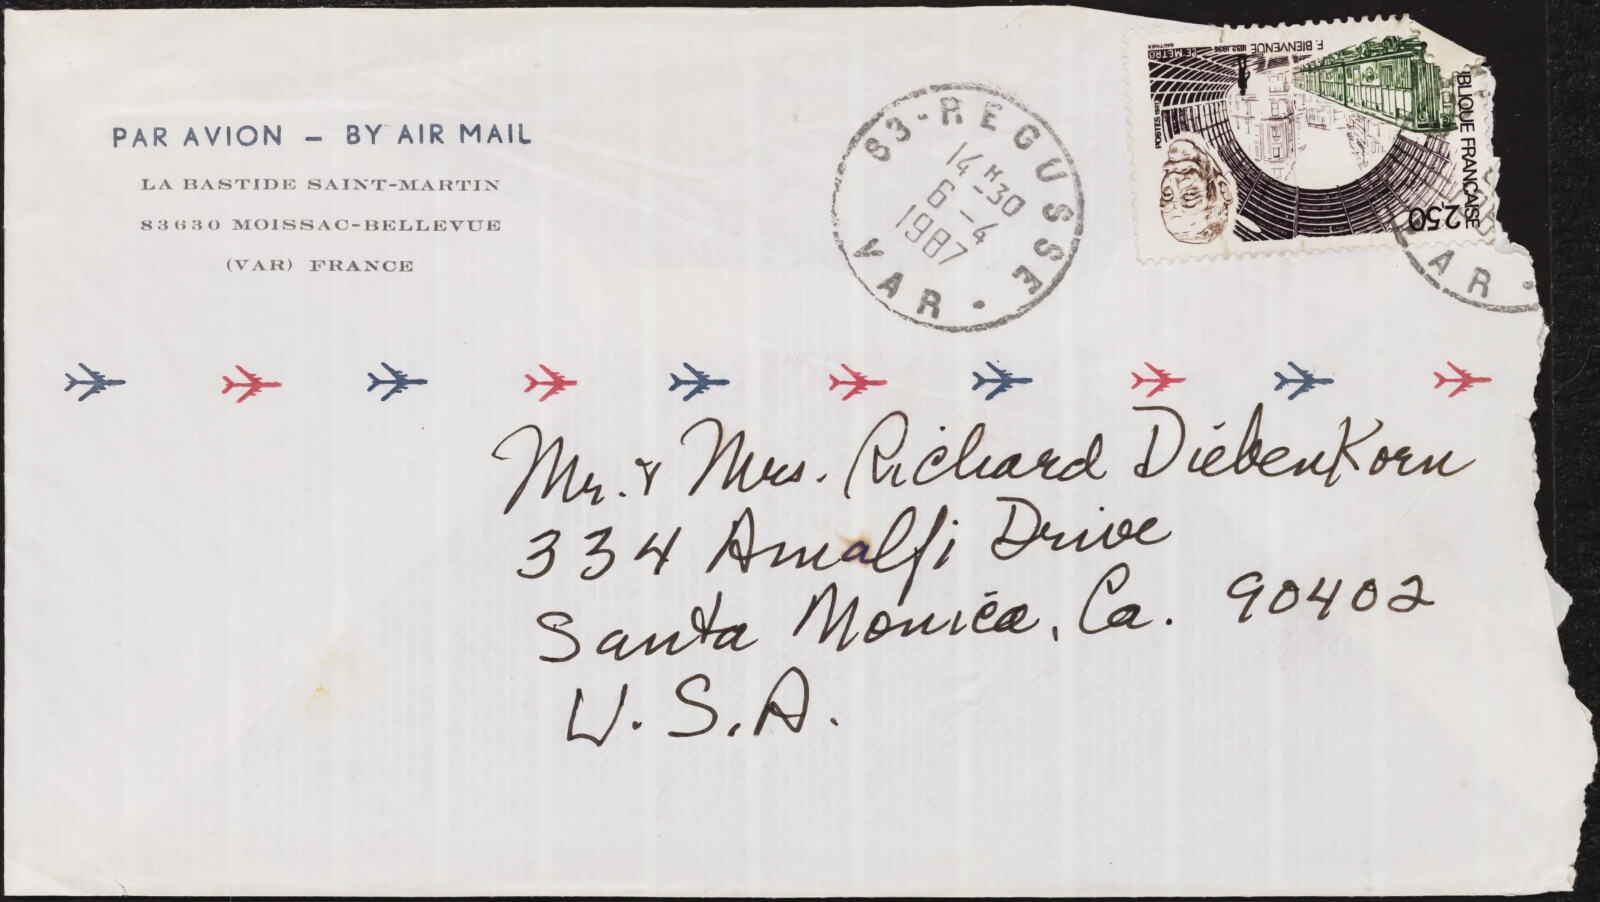 PAR AVION – BY AIR MAIL
LA BASTIDE SAINT-MARTIN
83630 MOISSAC-BELLEVUE
(VAR) FRANCE
83-REGUSSE
14H30
6-4
1987
VAR
F. BIENVENUE 1852.1936
LE METRO
GAUTHIER
POSTES 1987
BLIQUE FRANÇAISE
2,50
AR
Mr. & Mrs. Richard Diebenkorn
334 Amalfi Drive
Santa Monica, Ca. 90402
U.S.A.